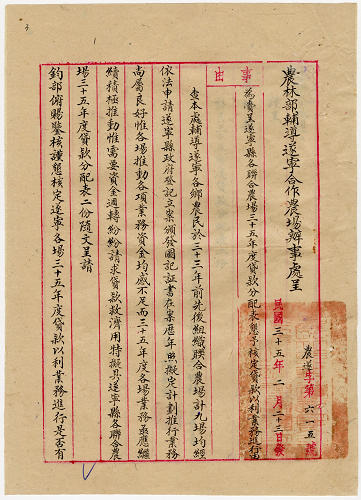 農林部輔導遂寧合作農場辦事處呈
農遂字第六一五號
民國三十五年二月二十三日發
事由
為賫呈遂寧縣各聯合農場三十五年度貸款分配表懇予核定貸款以利業務進行由
查本處輔導遂寧各鄉農民於三十三年前先後組織聯合農場計九場均經
依法申請遂寧縣政府登記立案頒發圖記証書在案歷年照擬定計劃推行業務
尚屬良好惟各場推動各項業務資金均感不足而三十五年度各場業務亟應繼
續積極推動惟需要資金週轉紛紛請求貸款救濟用特擬具遂寧縣各聯合農
場三十五年度貸款分配表二份隨文呈請
鈞部俯賜鑒核謹懇核定遂寧各場三十五年度貸款以利業務進行是否有